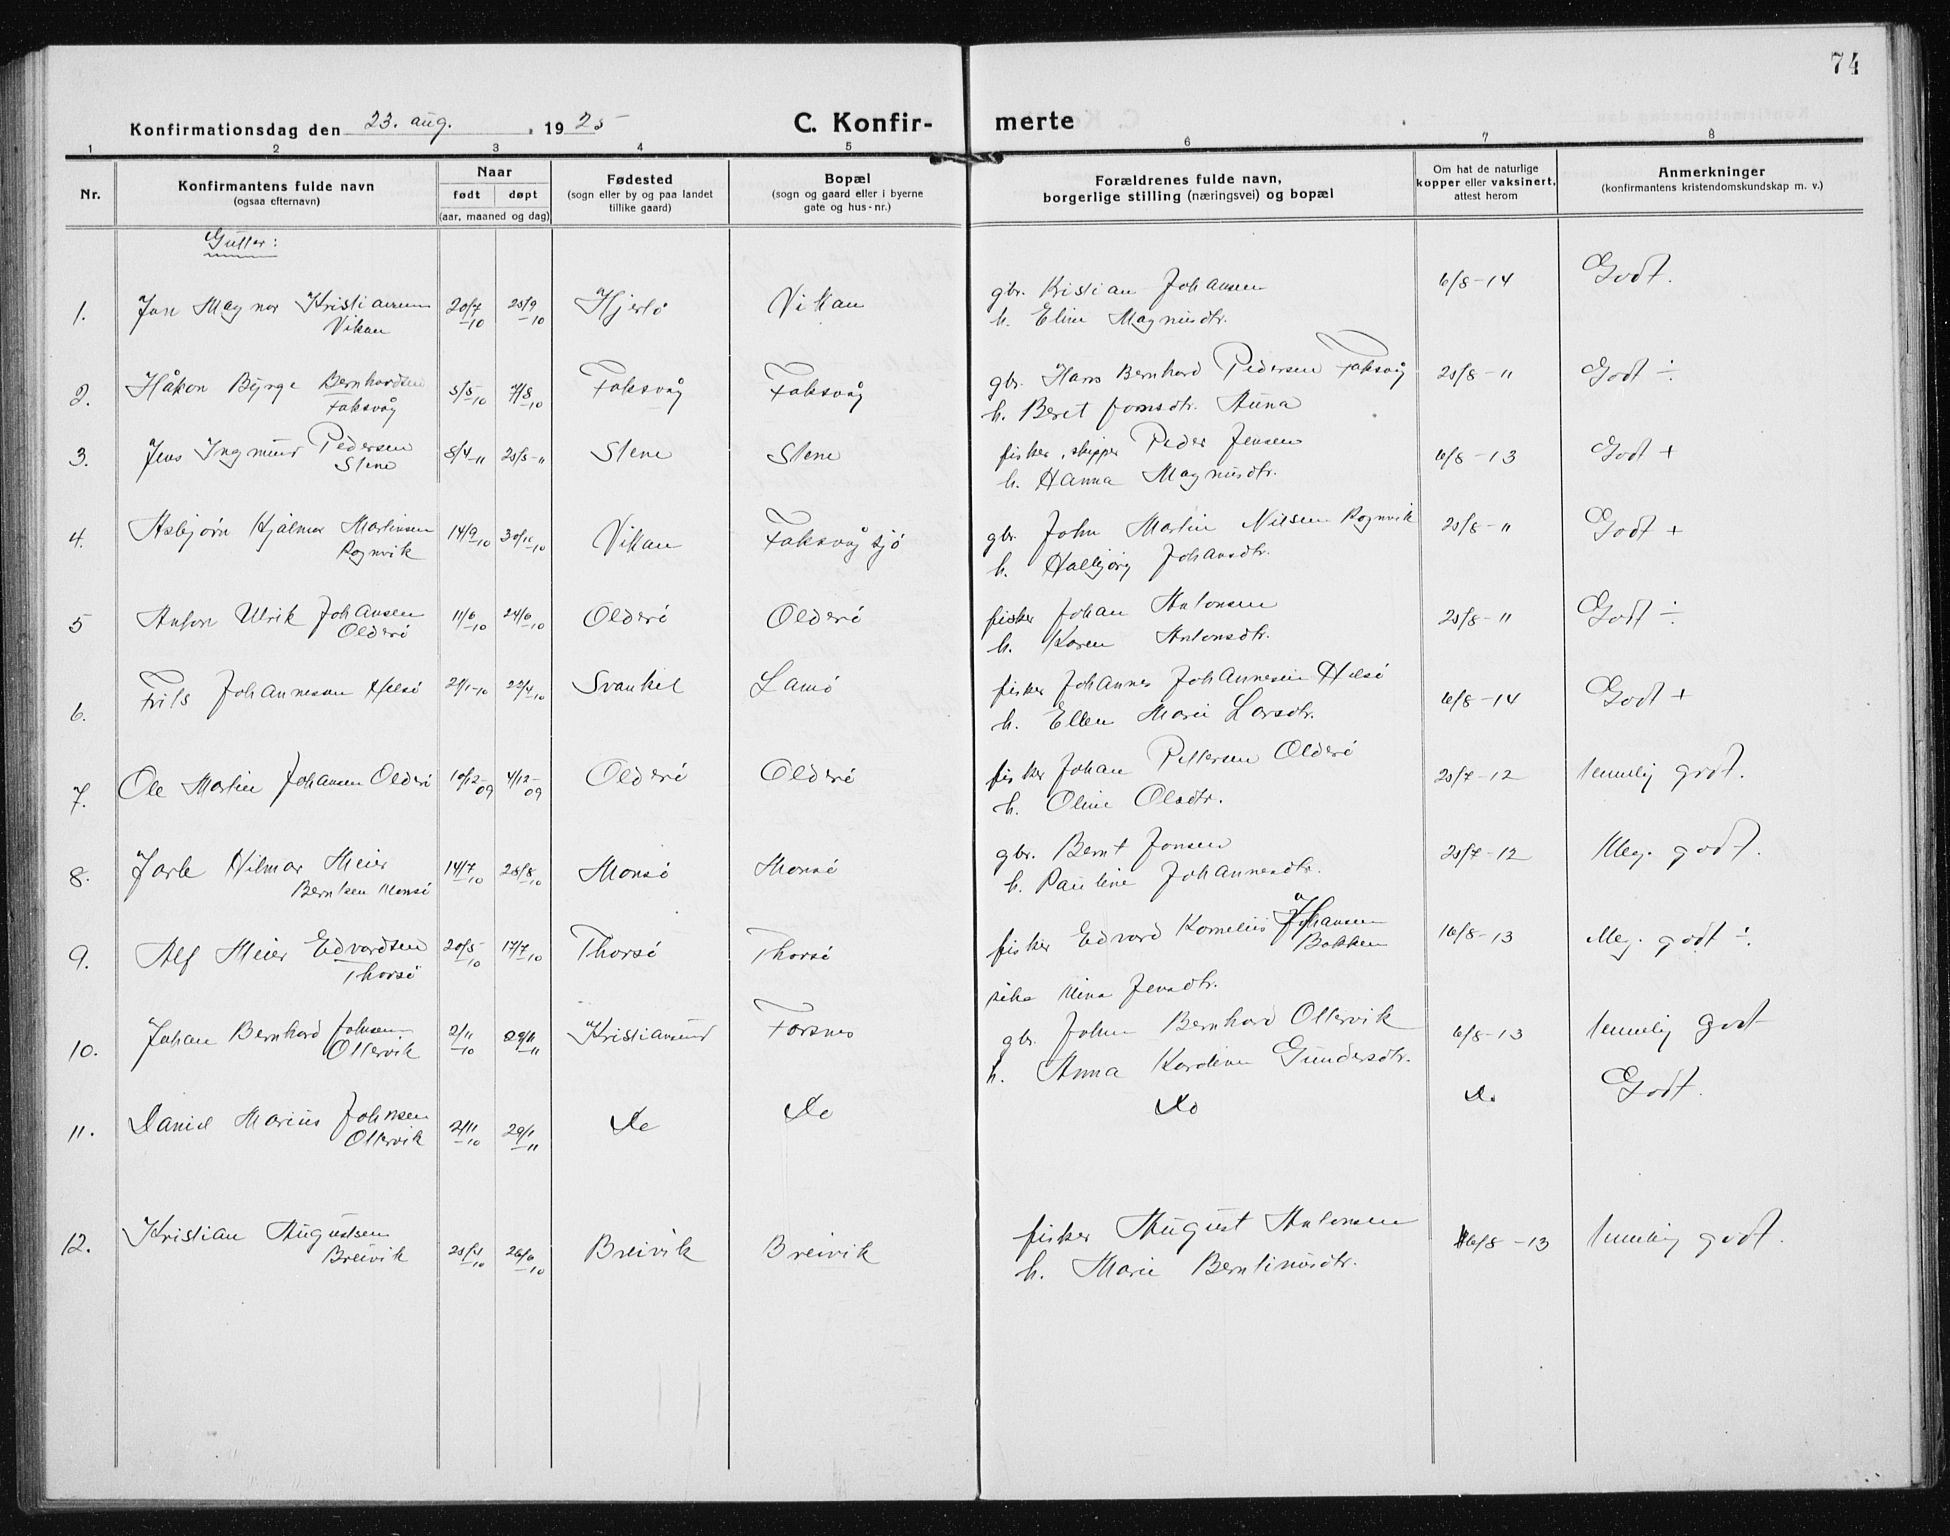 74
Konfirmationsdag den 23. aug. 1925
C. Konfir- merte
1 2 3 4 5 6 7 8
Nr.
Konfirmantens fulde navn
(ogsaa efternavn)
Naar
født døpt
(aar, maaned og dag)
Fødested
(sogn eller by og paa landet
tillike gaard)
Bopæl
(sogn og gaard eller i byerne
gate og hus-nr.)
Forældrenes fulde navn,
borgerlige stilling (næringsvei) og bopæl
Om hat de naturlige
kopper eller vaksinert,
attest herom
Anmerkninger
(konfirmantens kristendomskundskap m. v.)
Gutter:
1. Jon Magnar Kristiansen 20/7 -10 25/9 -10 Vikan gbr. Kristian Johansen 6/8-14 Godt.
Vikan h. Eline Magnusdr.
2. Håkon Bernhardsen 5/5 -10 7/8 -10 Faksvåg Faksvåg gbr. Hans Bernhard Pedersen Faksvåg 25/8-" Godt ÷
Faksvåg h. Beret Aune
3. Jens Ingmund Pedersen 8/4-" 25/5-" Stene Stene fisker, skipper Peder Jensen 6/8-13 Godt +
Stene h. Hanna Magnusdtr.
4. Asbjørn Hjalmar Martinsen 14/9 -10 30/11 -10 Vikan Faksvåg sjø gbr. John Martin Nilsen Rognvik 25/8-" Godt +
Rognvik h. Johansdtr.
5 Anton Ulrik Johansen 11/6 -10 24/6 -10 Olderø Olderø fisker Johan Antonsen 25/8-" Godt ÷
Olderø h. Karen Antonsdtr.
6. Frits Johannesen 21/1-10 22/4 -10 Lamø fisker Johannes Johannesen 6/8-14 Godt +
h. Ellen Marie Larsdtr.
7. Ole Martin Johansen Olderø 10/12- 09 4/12- 09 Olderø Olderø fisker Johan Pettersen Olderø 25/7-12 temmelig godt.
h. Oline Olsdtr.
8. Jarle Hilmar Meier 14/7 -10 28/8 -10 Monsø Monsø gbr. Bernt Jonsen 25/7-12 Meg. godt.
Berntsen Monsø h. Pauline Johannesdtr.
9. Alf Meier Edvardsen 20/5 -10 17/7 -10 Thorsø Thorsø fisker Edvard Kornelius Johansen 16/8-13 Meg. godt ÷
Thorsø Bakken
pike Mina Jensdtr.
10. Johan Bernhard Johnsen 2/11 -10 -11 Kristiansund Forsnes gbr. John Bernhard Ottervik 6/8-13 temmelig godt
Ottervik h. Anna Karoline Gundersdtr.
11. Daniel Marius Johnsen 2/11 -10 29/1 -11 Do Do Do Do Godt.
Ottervik
12. Kristian Augustsen -10 26/6 -10 Breivik Breivik fisker August Antonsen 6/8-13 temmelig godt.
Breivik h. Marie Berntinusdtr.